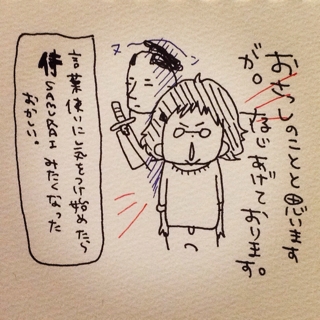 おさっしのことと思います
が。
あげております。
ヌーン
言葉使いに気をつけ始めたら
侍SAMURAIみたくなった
おかしい。